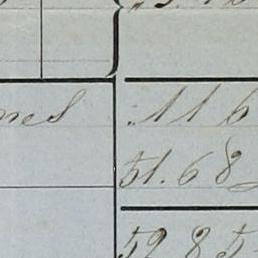 nes .116
51.68
52.85